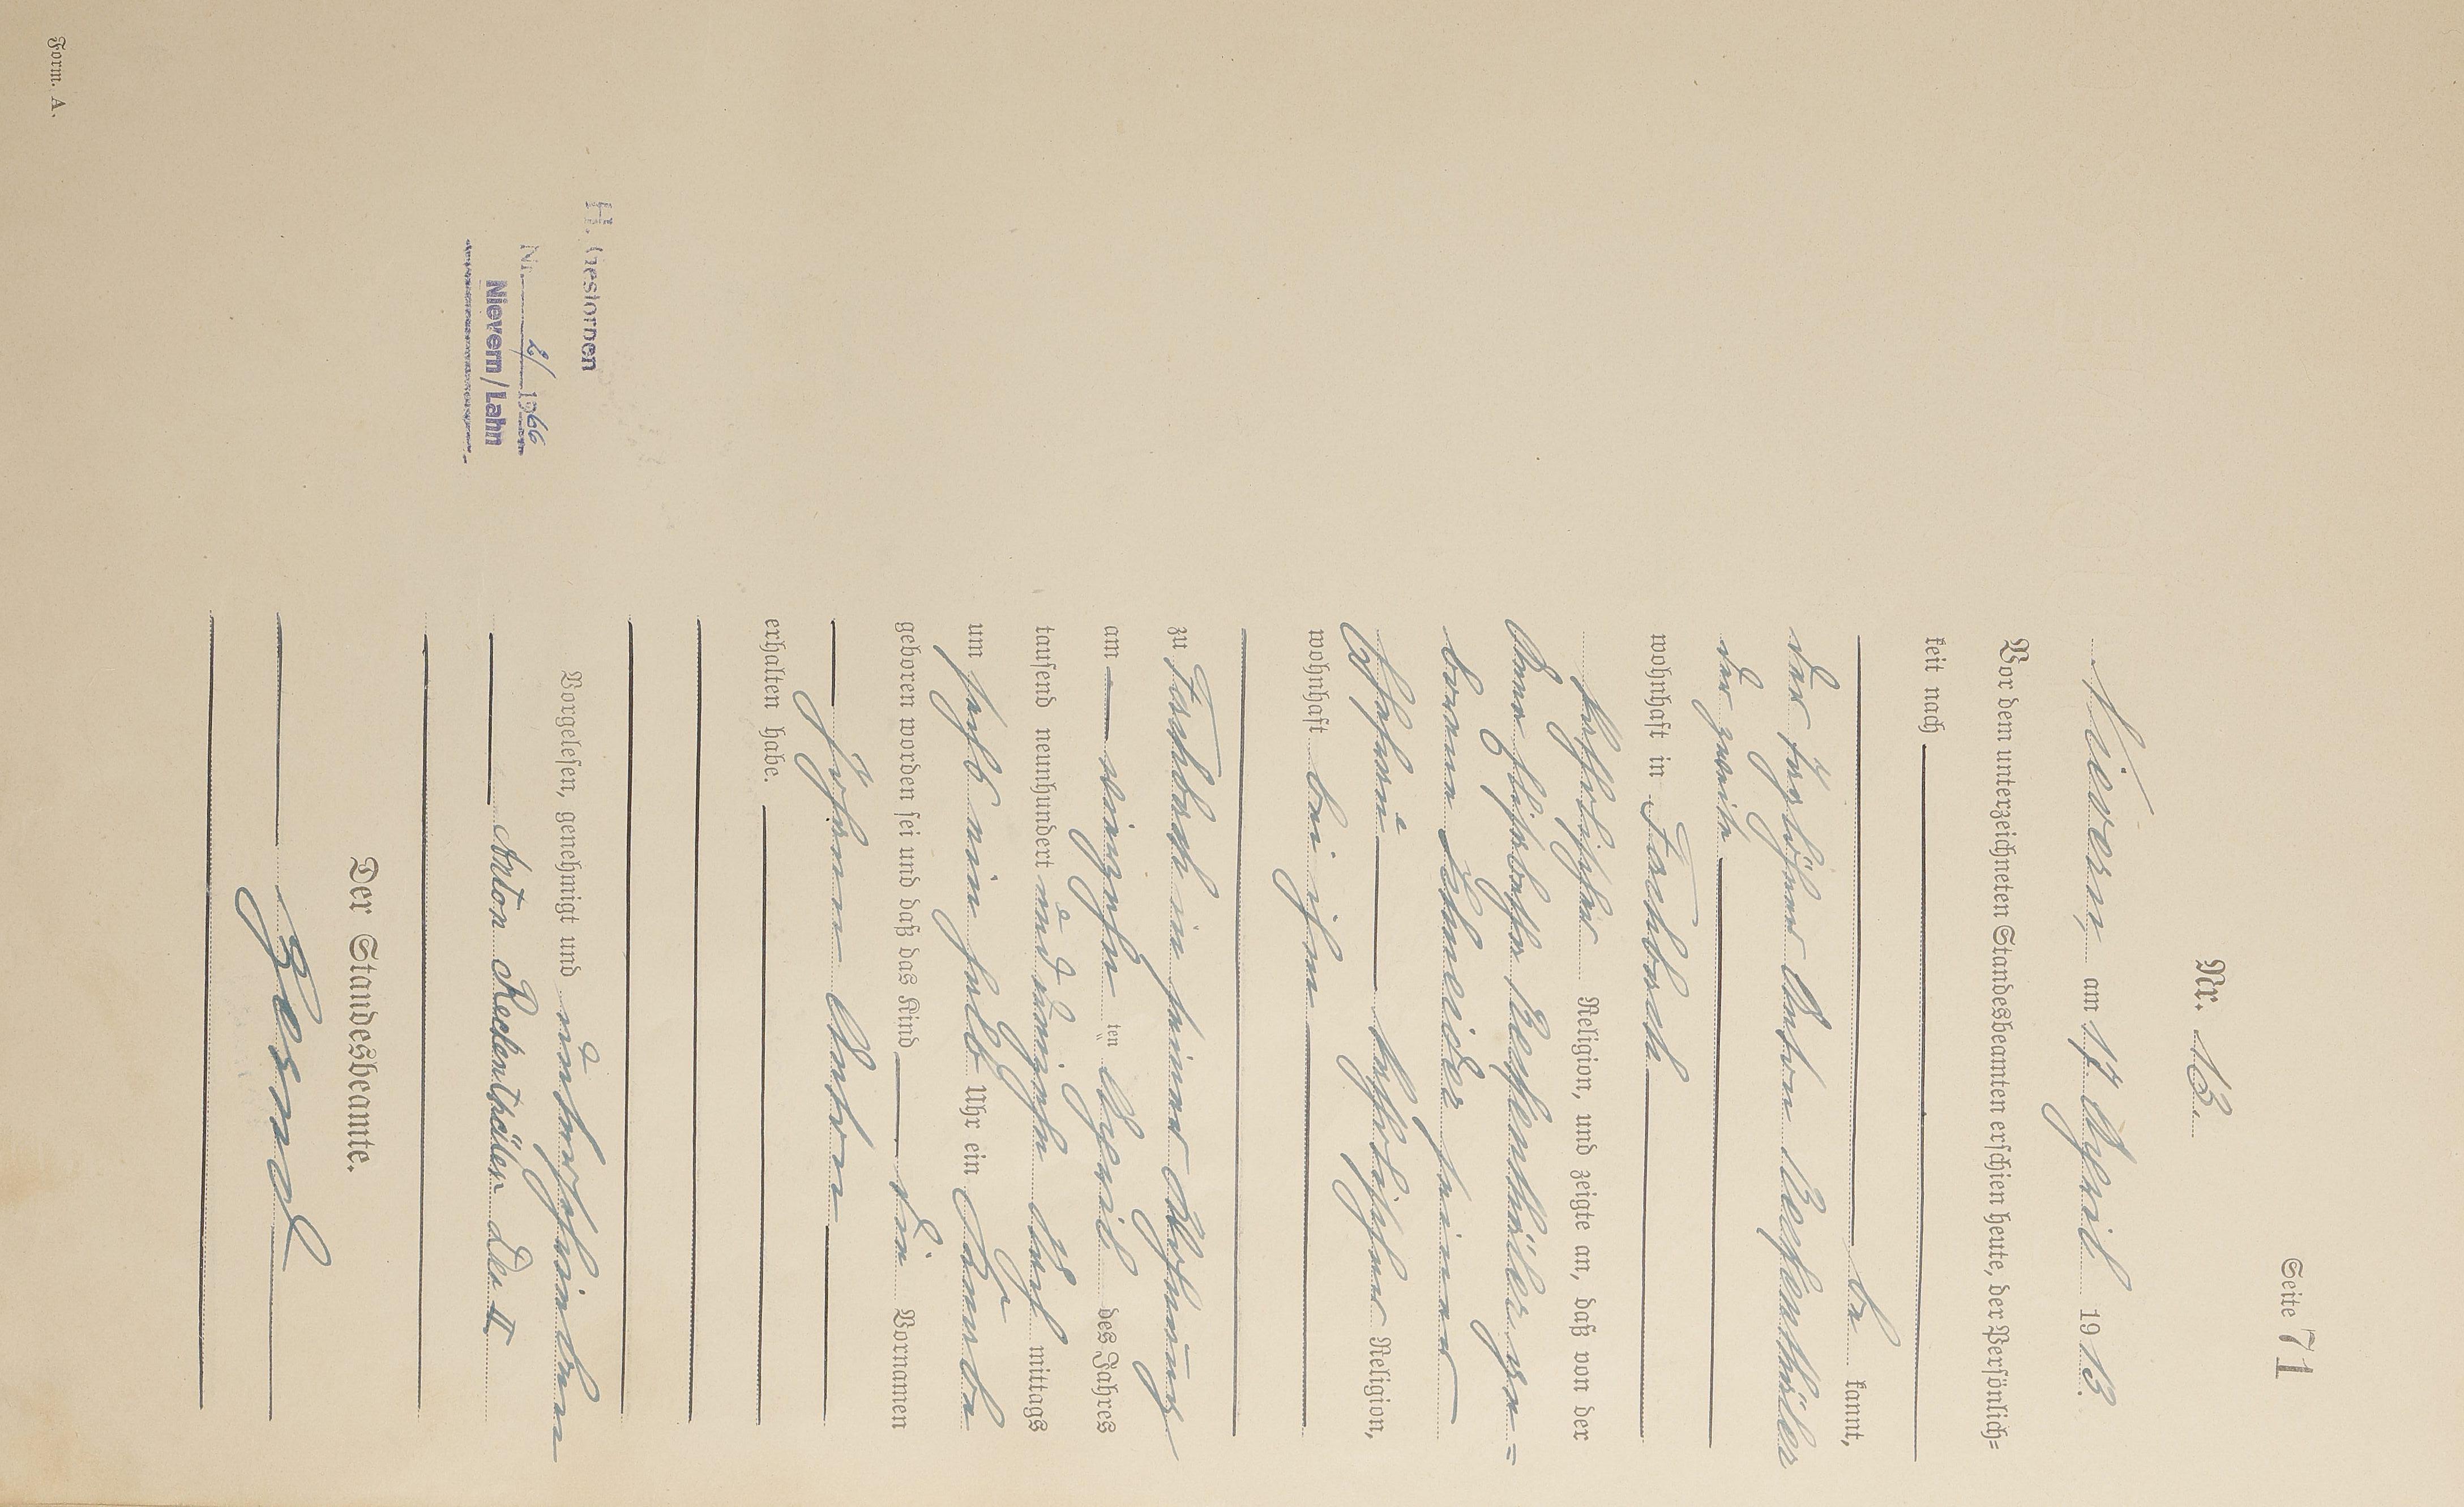 Seite 71
Nr. 13.
Nievern, am 17. April 1913.
Vor dem unterzeichneten Standesbeamten erschien heute, der Persönlich-
keit nach
be kannt,
der Tagelöhner Anton Rechenthäler
der zweite
wohnhaft in Fachbach
katholischer Religion, und zeigte an, daß von der
Anna Elisabetha Rechenthäler ge=
borenen Schneider seiner
Ehefrau katholischer Religion,
wohnhaft bei ihm
zu Fachbach in seiner Wohnung
am vierzehn ten April des Jahres
tausend neunhundert und dreizehn Nach mittags
um sechs ein halb Uhr ein Knabe
geboren worden sei und daß das Kind die Vornamen
Johann Anton
erhalten habe.
Vorgelesen, genehmigt und unterschrieben
Anton Rechenthäler der II
Der Standesbeamte.
H. Gestorben
Nr. 2/ 1966
Nievern/Lahn
Form. A.